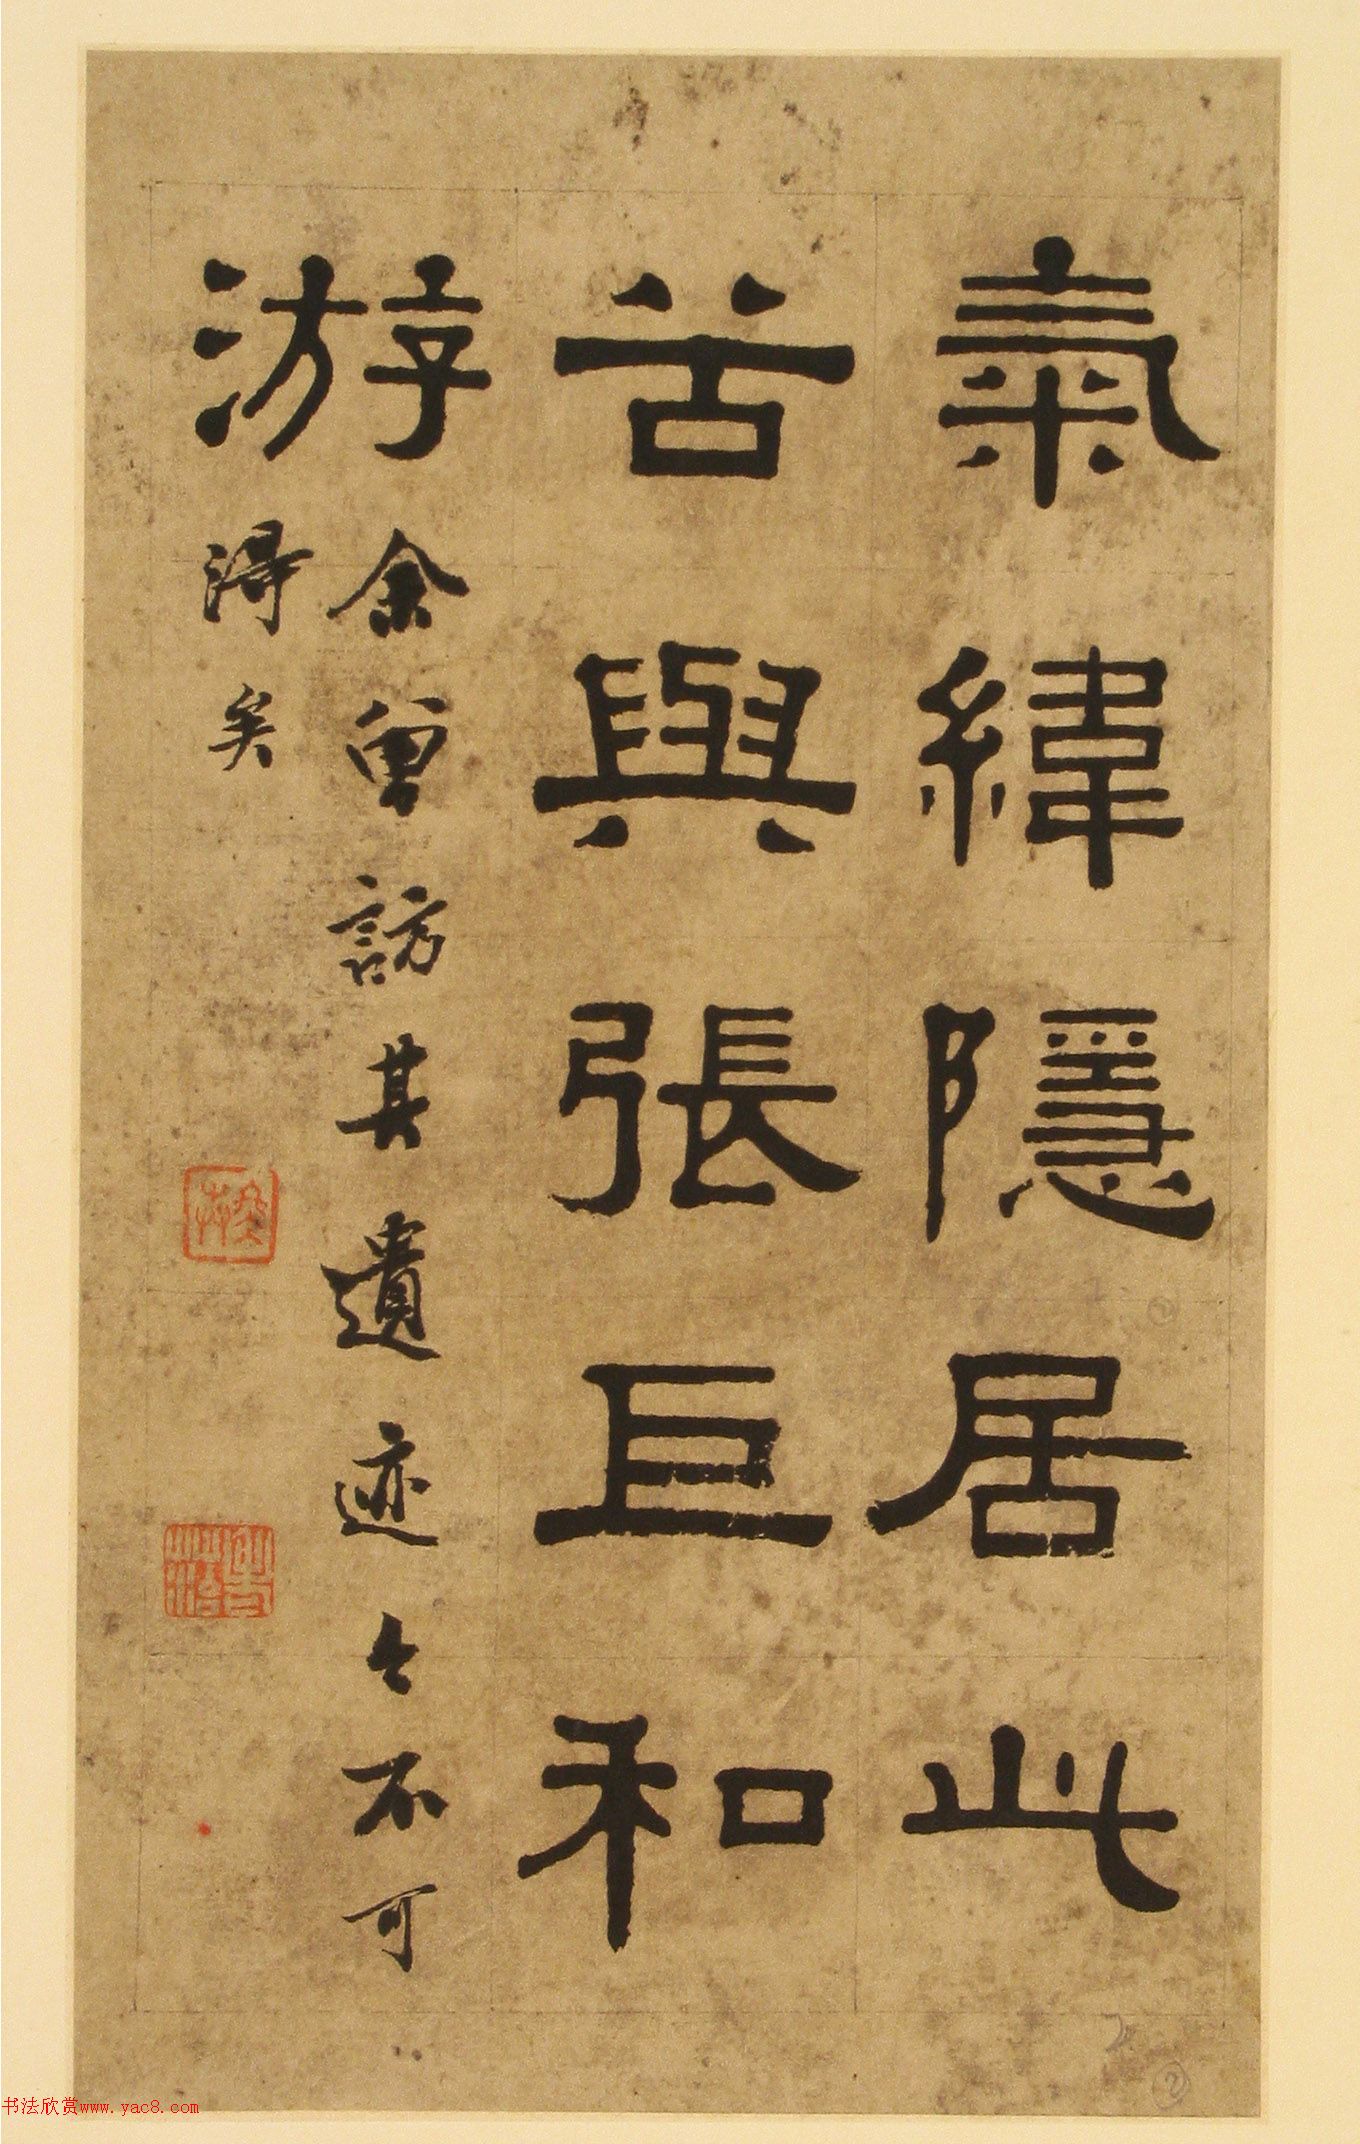 氣緯隱居此
苦與張巨和
游余曾訪其遺迹今不可
淂矣
书法欣赏www.yac8.com